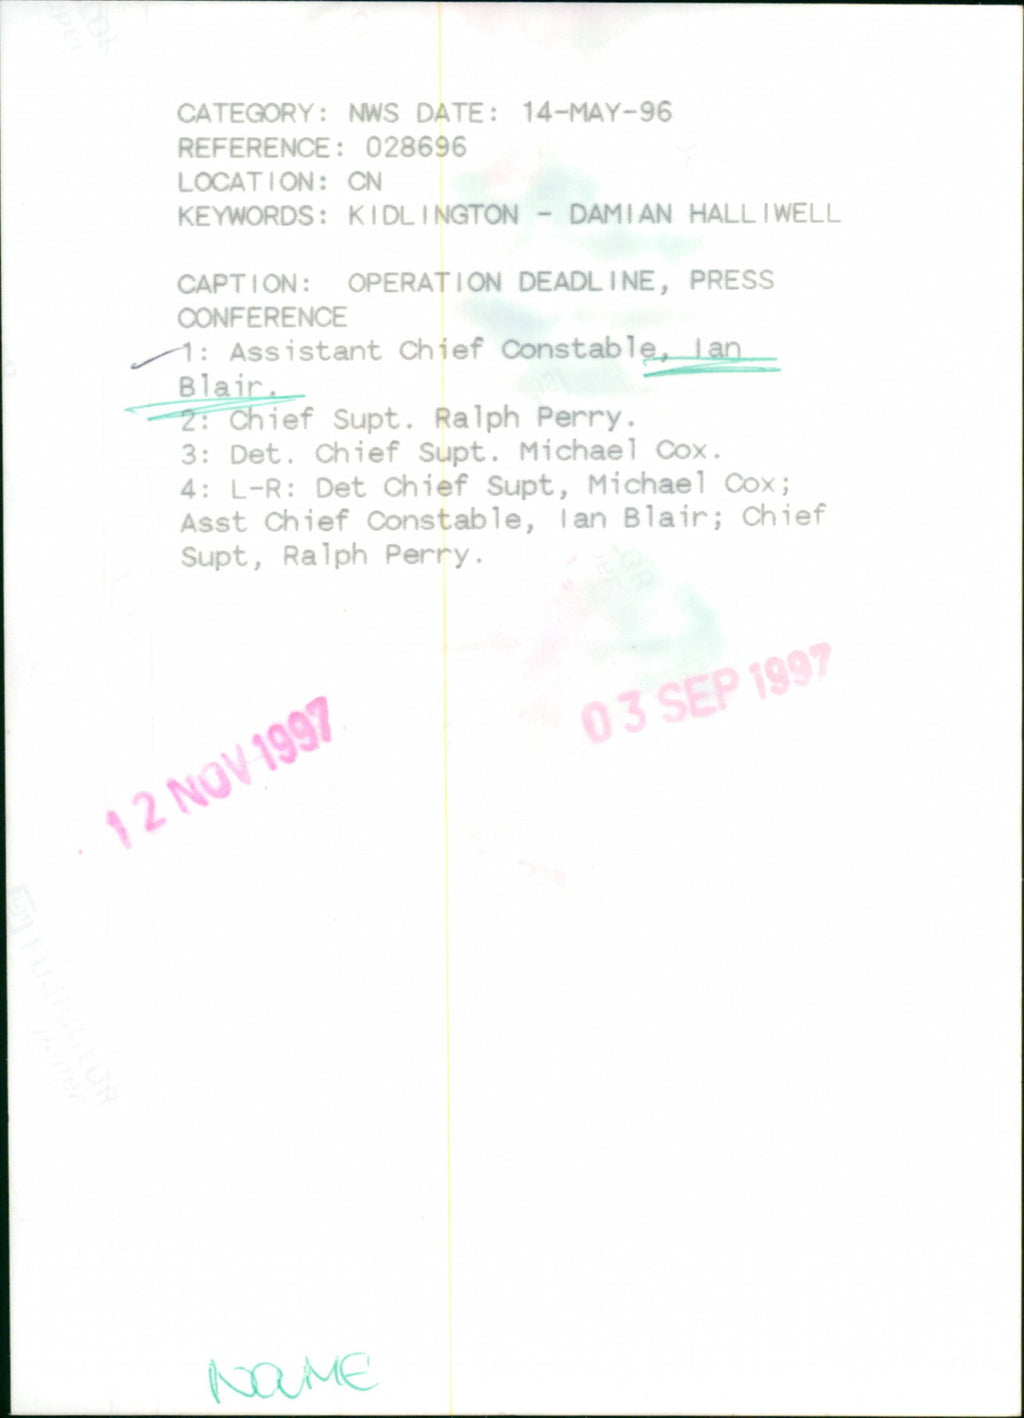 CATEGORY: NWS DATE: 14-MAY-96
REFERENCE: 028696
LOCATION: CN
KEYWORDS: KIDLINGTON - DAMIAN HALLIWELL
CAPTION: OPERATION DEADLINE, PRESS
CONFERENCE
1: Assistant Chief Constable, Ian
Blair.
2: Chief Supt. Ralph Perry.
3: Det. Chief Supt. Michael Cox.
4: L-R: Det Chief Supt, Michael Cox;
Asst Chief Constable, Ian Blair; Chief
Supt, Ralph Perry.
03 SEP 1997
12 NOV 1997
NAME